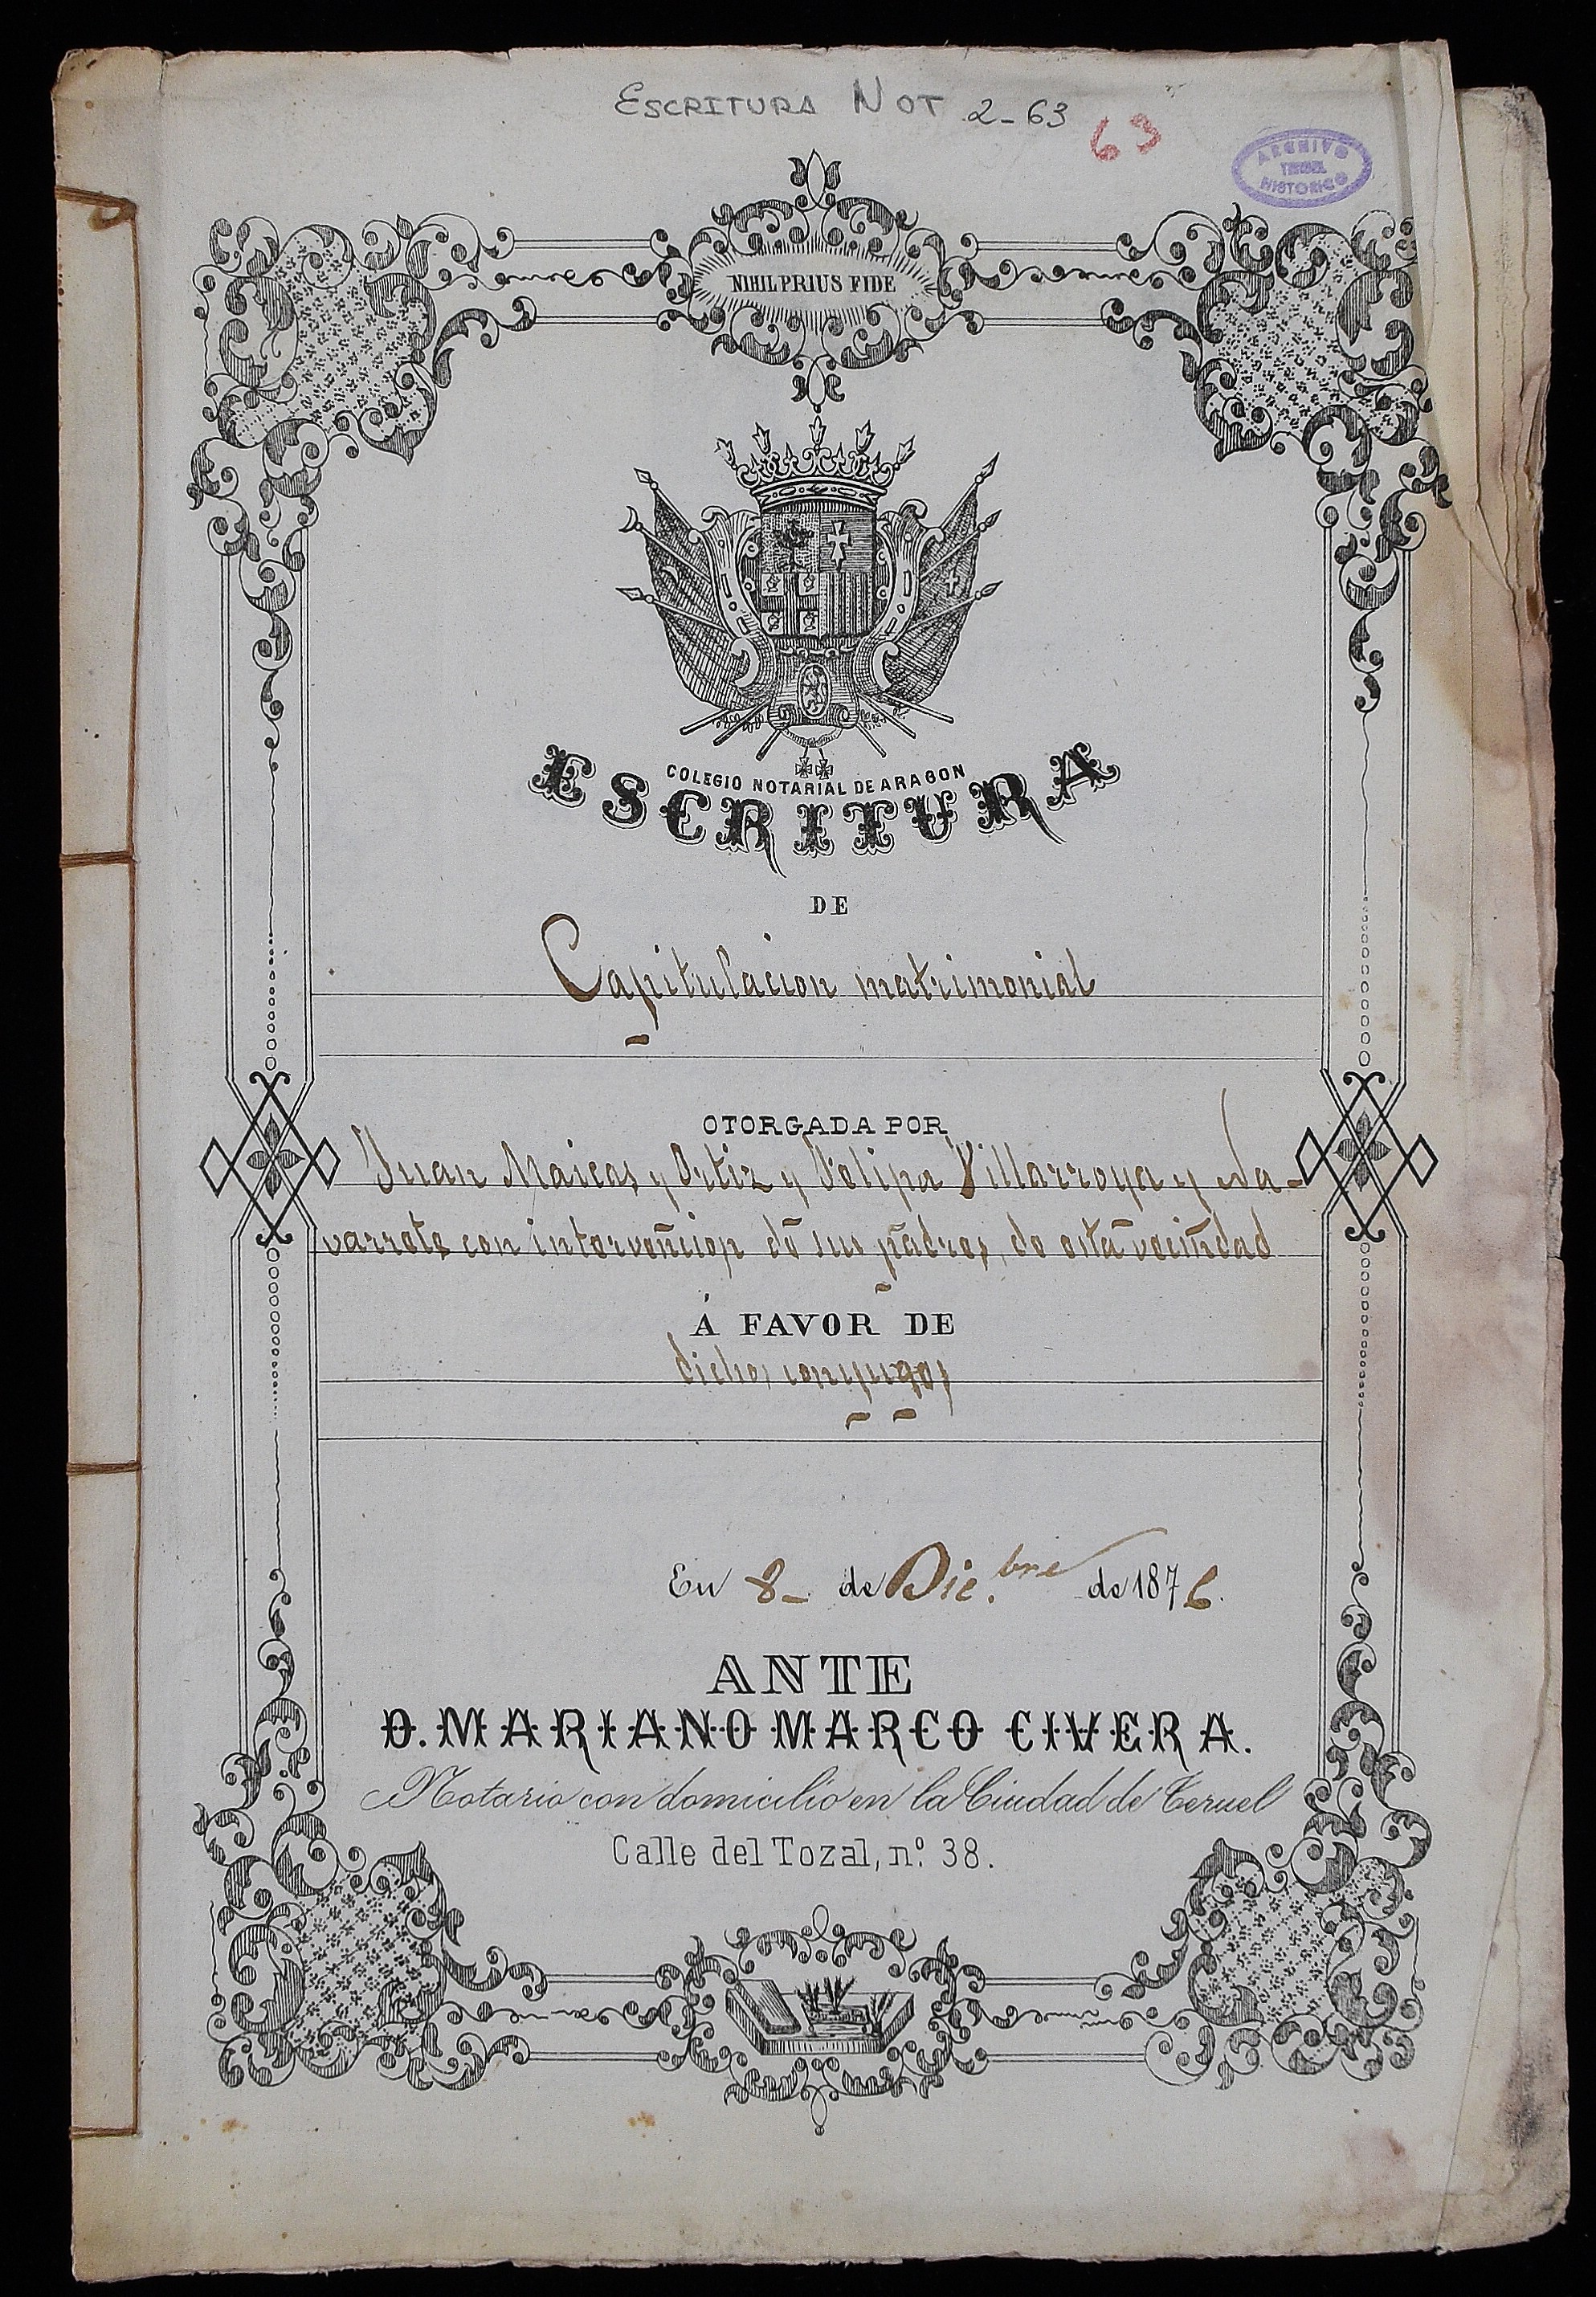 ESCRITURA NOT 2-63
63
ARCHIVO
TERUEL
HISTORICO
NIHIL PRIUS FIDE
COLEGIO NOTARIAL DE ARAGON
ESCRITURA
DE
Capitulacion matrimonial
OTORGADA POR
Juan Maicas y Ortiz y Felipa Villarroya y Na-
varrete con intervencion de sus padres, de esta vecindad
Á FAVOR DE
dichos conyuges
En 8 de Dic.bre de 1876.
ANTE
D. MARIANO MARCO CIVERA.
Notario con domicilio en la Ciudad de Teruel
Calle del Tozal, nº. 38.